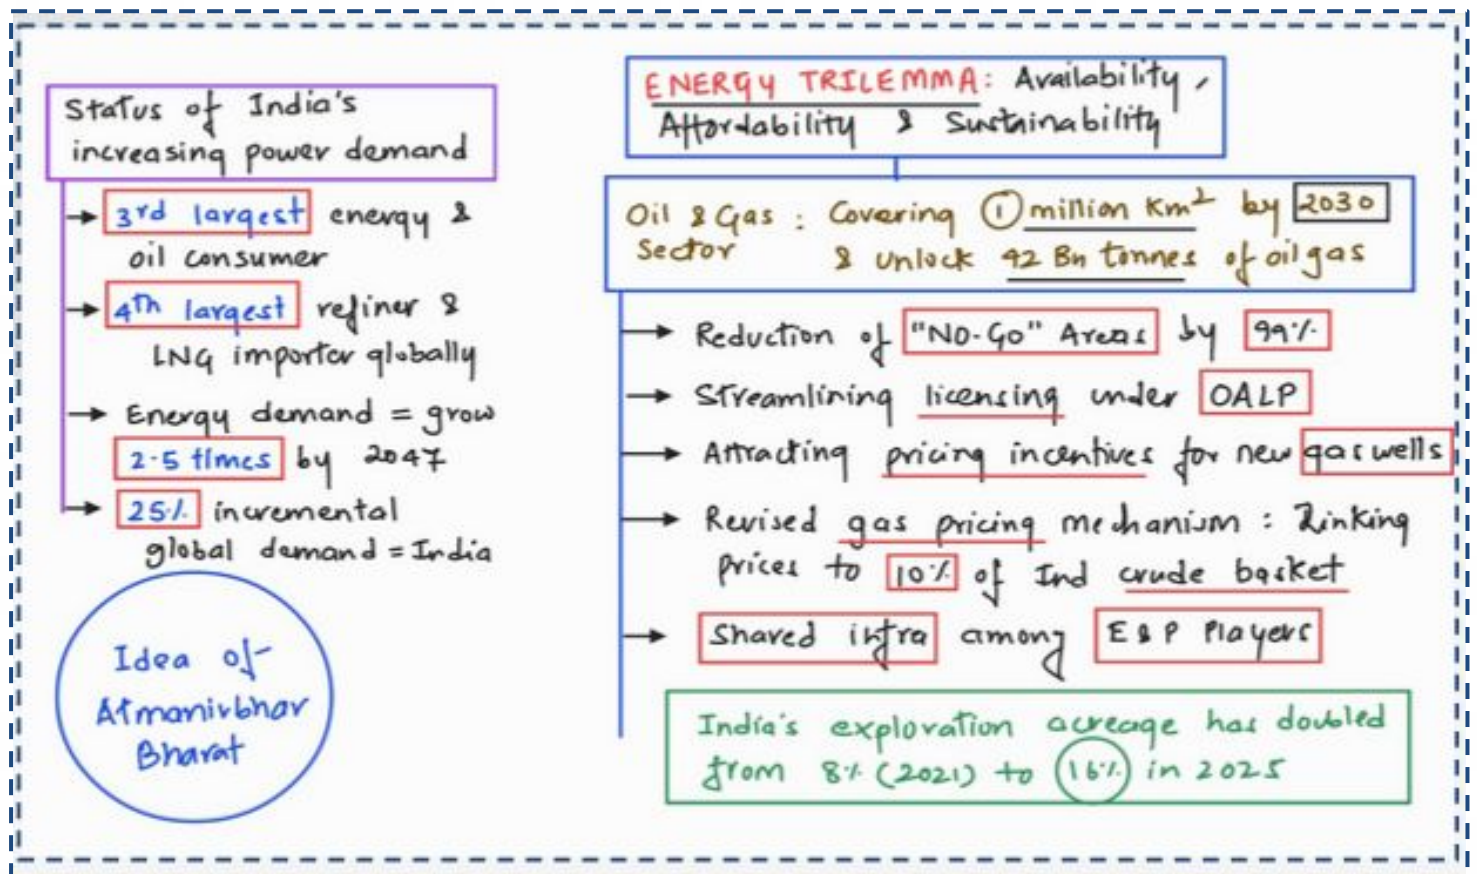 Status of India's
increasing power demand
→ 3rd largest energy &
oil consumer
→ 4th largest refiner &
LNG importer globally
→ Energy demand = grow
2.5 times by 2047
→ 25% incremental
global demand = India
Idea of
Atmanirbhar
Bharat
ENERGY TRILEMMA: Availability,
Affordability & Sustainability
Oil & Gas : Covering 1 million Km² by 2030
Sector & unlock 42 Bn tonnes of oil gas
→ Reduction of "NO-GO" Areas by 99%
→ Streamlining licensing under OALP
→ Attracting pricing incentives for new gas wells
→ Revised gas pricing mechanism : Linking
prices to 10% of Ind crude basket
→ Shared infra among E & P Players
India's exploration acreage has doubled
from 8% (2021) to 16% in 2025